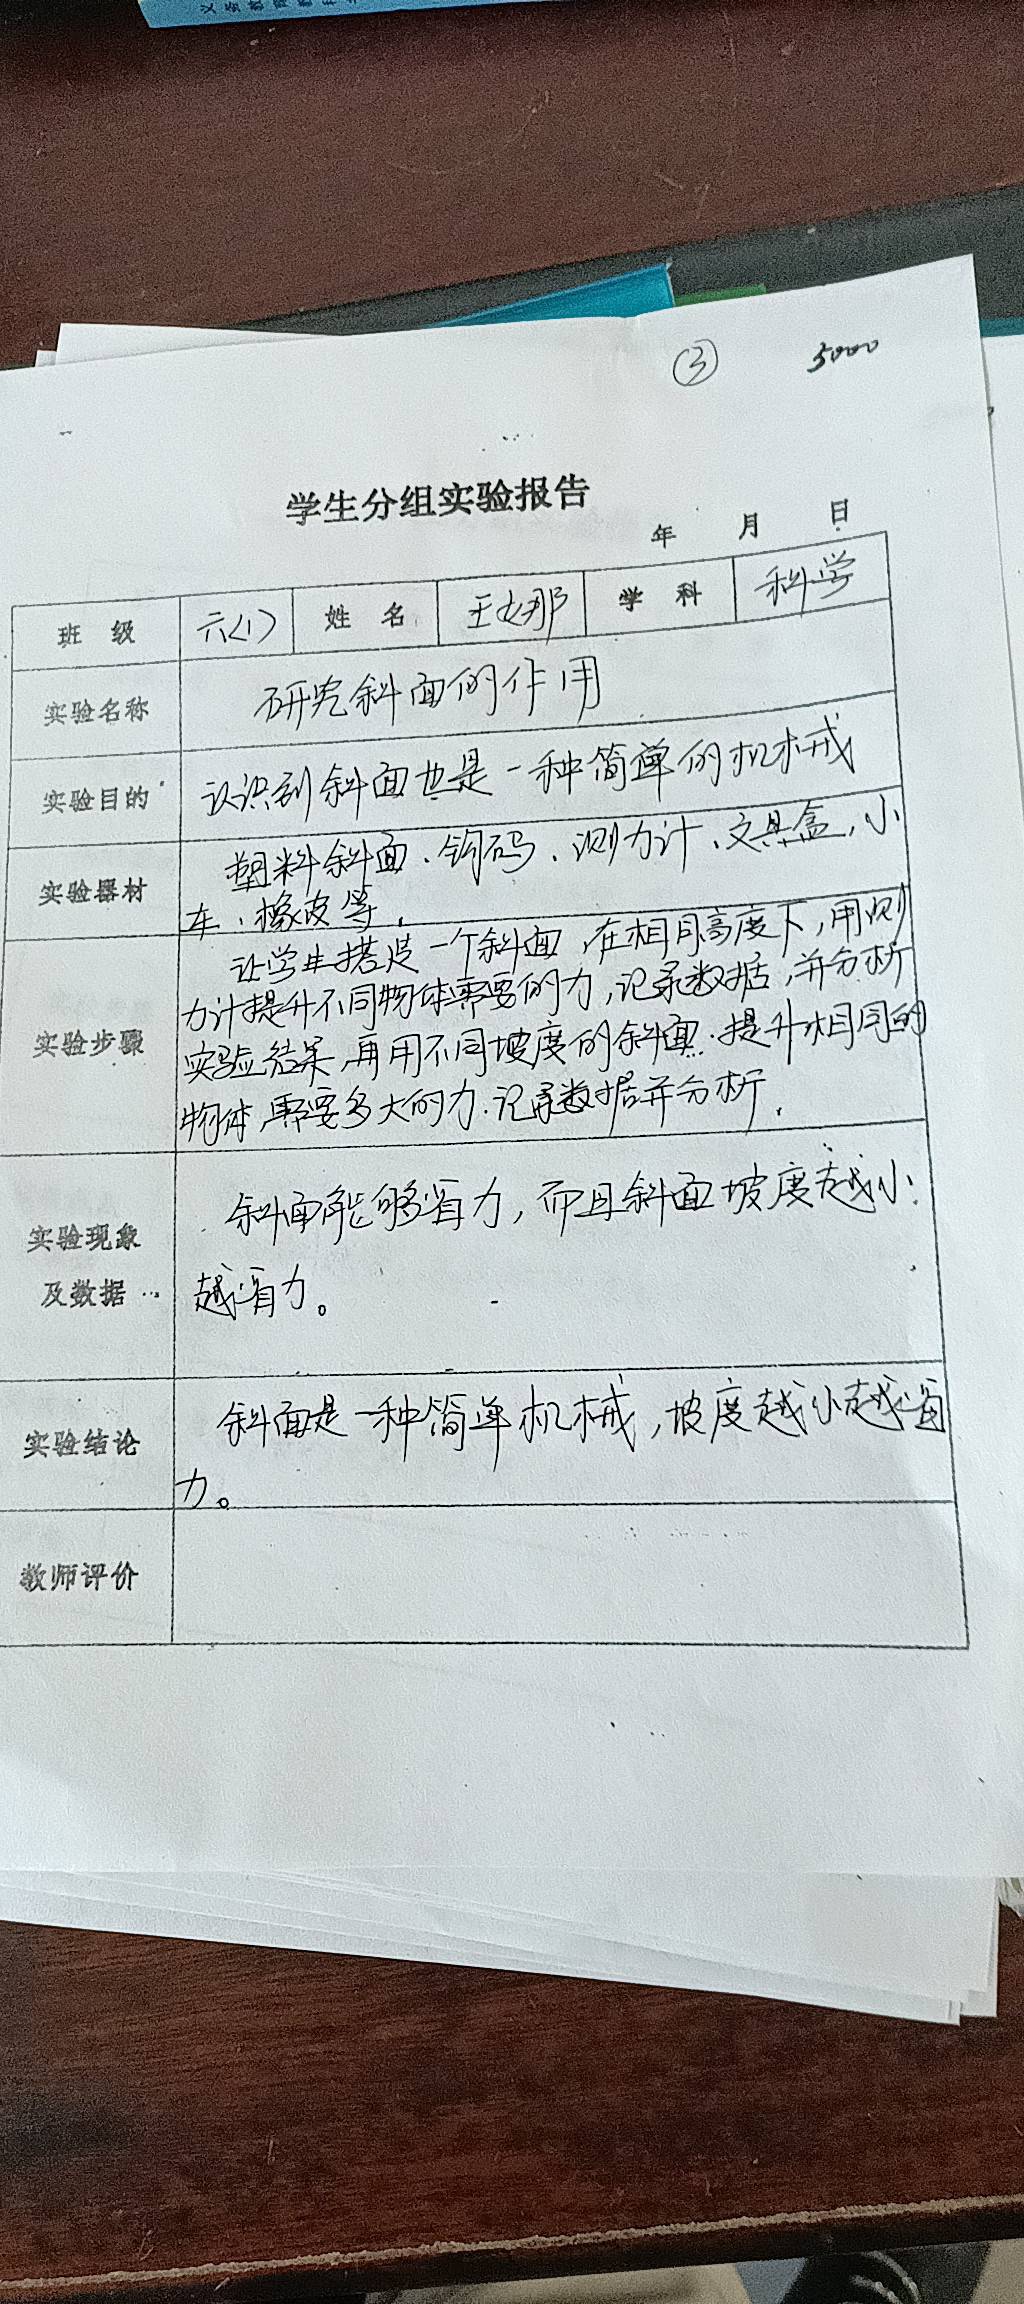 ③ 5000
学生分组实验报告
年 月 日
班 级 六(1) 姓 名 王 那 学 科 科学
实验名称 研究斜面的作用
实验目的 认识到斜面也是一种简单的机械
实验器材 塑料斜面、钩码、测力计、文具盒、小
车、橡皮等.
实验步骤 让学生搭造一个斜面,在相同高度下,用测
力计提升不同物体需要的力,记录数据,并分析
实验结果,再用不同坡度的斜面.提升相同的
物体,需要多大的力.记录数据并分析.
实验现象 斜面能够省力,而且斜面坡度越小
及数据 越省力。
实验结论 斜面是一种简单机械,坡度越小越省
力。
教师评价